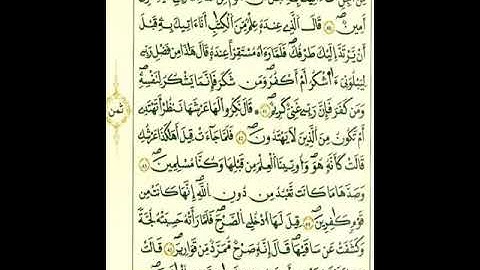 أَمِينٌ قَالَ اَلذِے عِندَهُۥ عِلْمٌ مِّنَ اَلْكِتَٰبِ أَنَا ءَاتِيكَ بِهِۦ قَبْلَ
أَنْ يَّرْتَدَّ إِلَيْكَ طَرْفُكَ فَلَمَّا رَءَاهُ مُسْتَقِرّاً عِندَهُۥ قَالَ هَٰذَا مِن فَضْلِ رَبِّے
لِيَبْلُوَنِيَ ءَآشْكُرُ أَمَ اَكْفُرُ وَمَن شَكَرَ فَإِنَّمَا يَشْكُرُ لِنَفْسِهِۦ
وَمَن كَفَرَ فَإِنَّ رَبِّے غَنِيٌّ كَرِيمٌ قَالَ نَكِّرُواْ لَهَا عَرْشَهَا نَنظُرَ اَتَهْتَدِے
أَمْ تَكُونُ مِنَ اَلذِينَ لَا يَهْتَدُونَ فَلَمَّا جَآءَتْ قِيلَ أَهَٰكَذَا عَرْشُكِ
قَالَتْ كَأَنَّهُۥ هُوَ وَأُوتِينَا اَلْعِلْمَ مِن قَبْلِهَا وَكُنَّا مُسْلِمِينَ
وَصَدَّهَا مَا كَانَت تَّعْبُدُ مِن دُونِ اِللَّهِ إِنَّهَا كَانَتْ مِن
قَوْمٍ كَٰفِرِينَ قِيلَ لَهَا اَدْخُلِے اِلصَّرْحَ فَلَمَّا رَأَتْهُ حَسِبَتْهُ لُجَّةً
وَكَشَفَتْ عَن سَاقَيْهَا قَالَ إِنَّهُۥ صَرْحٌ مُّمَرَّدٌ مِّن قَوَارِيرَ قَالَتْ
ثمن